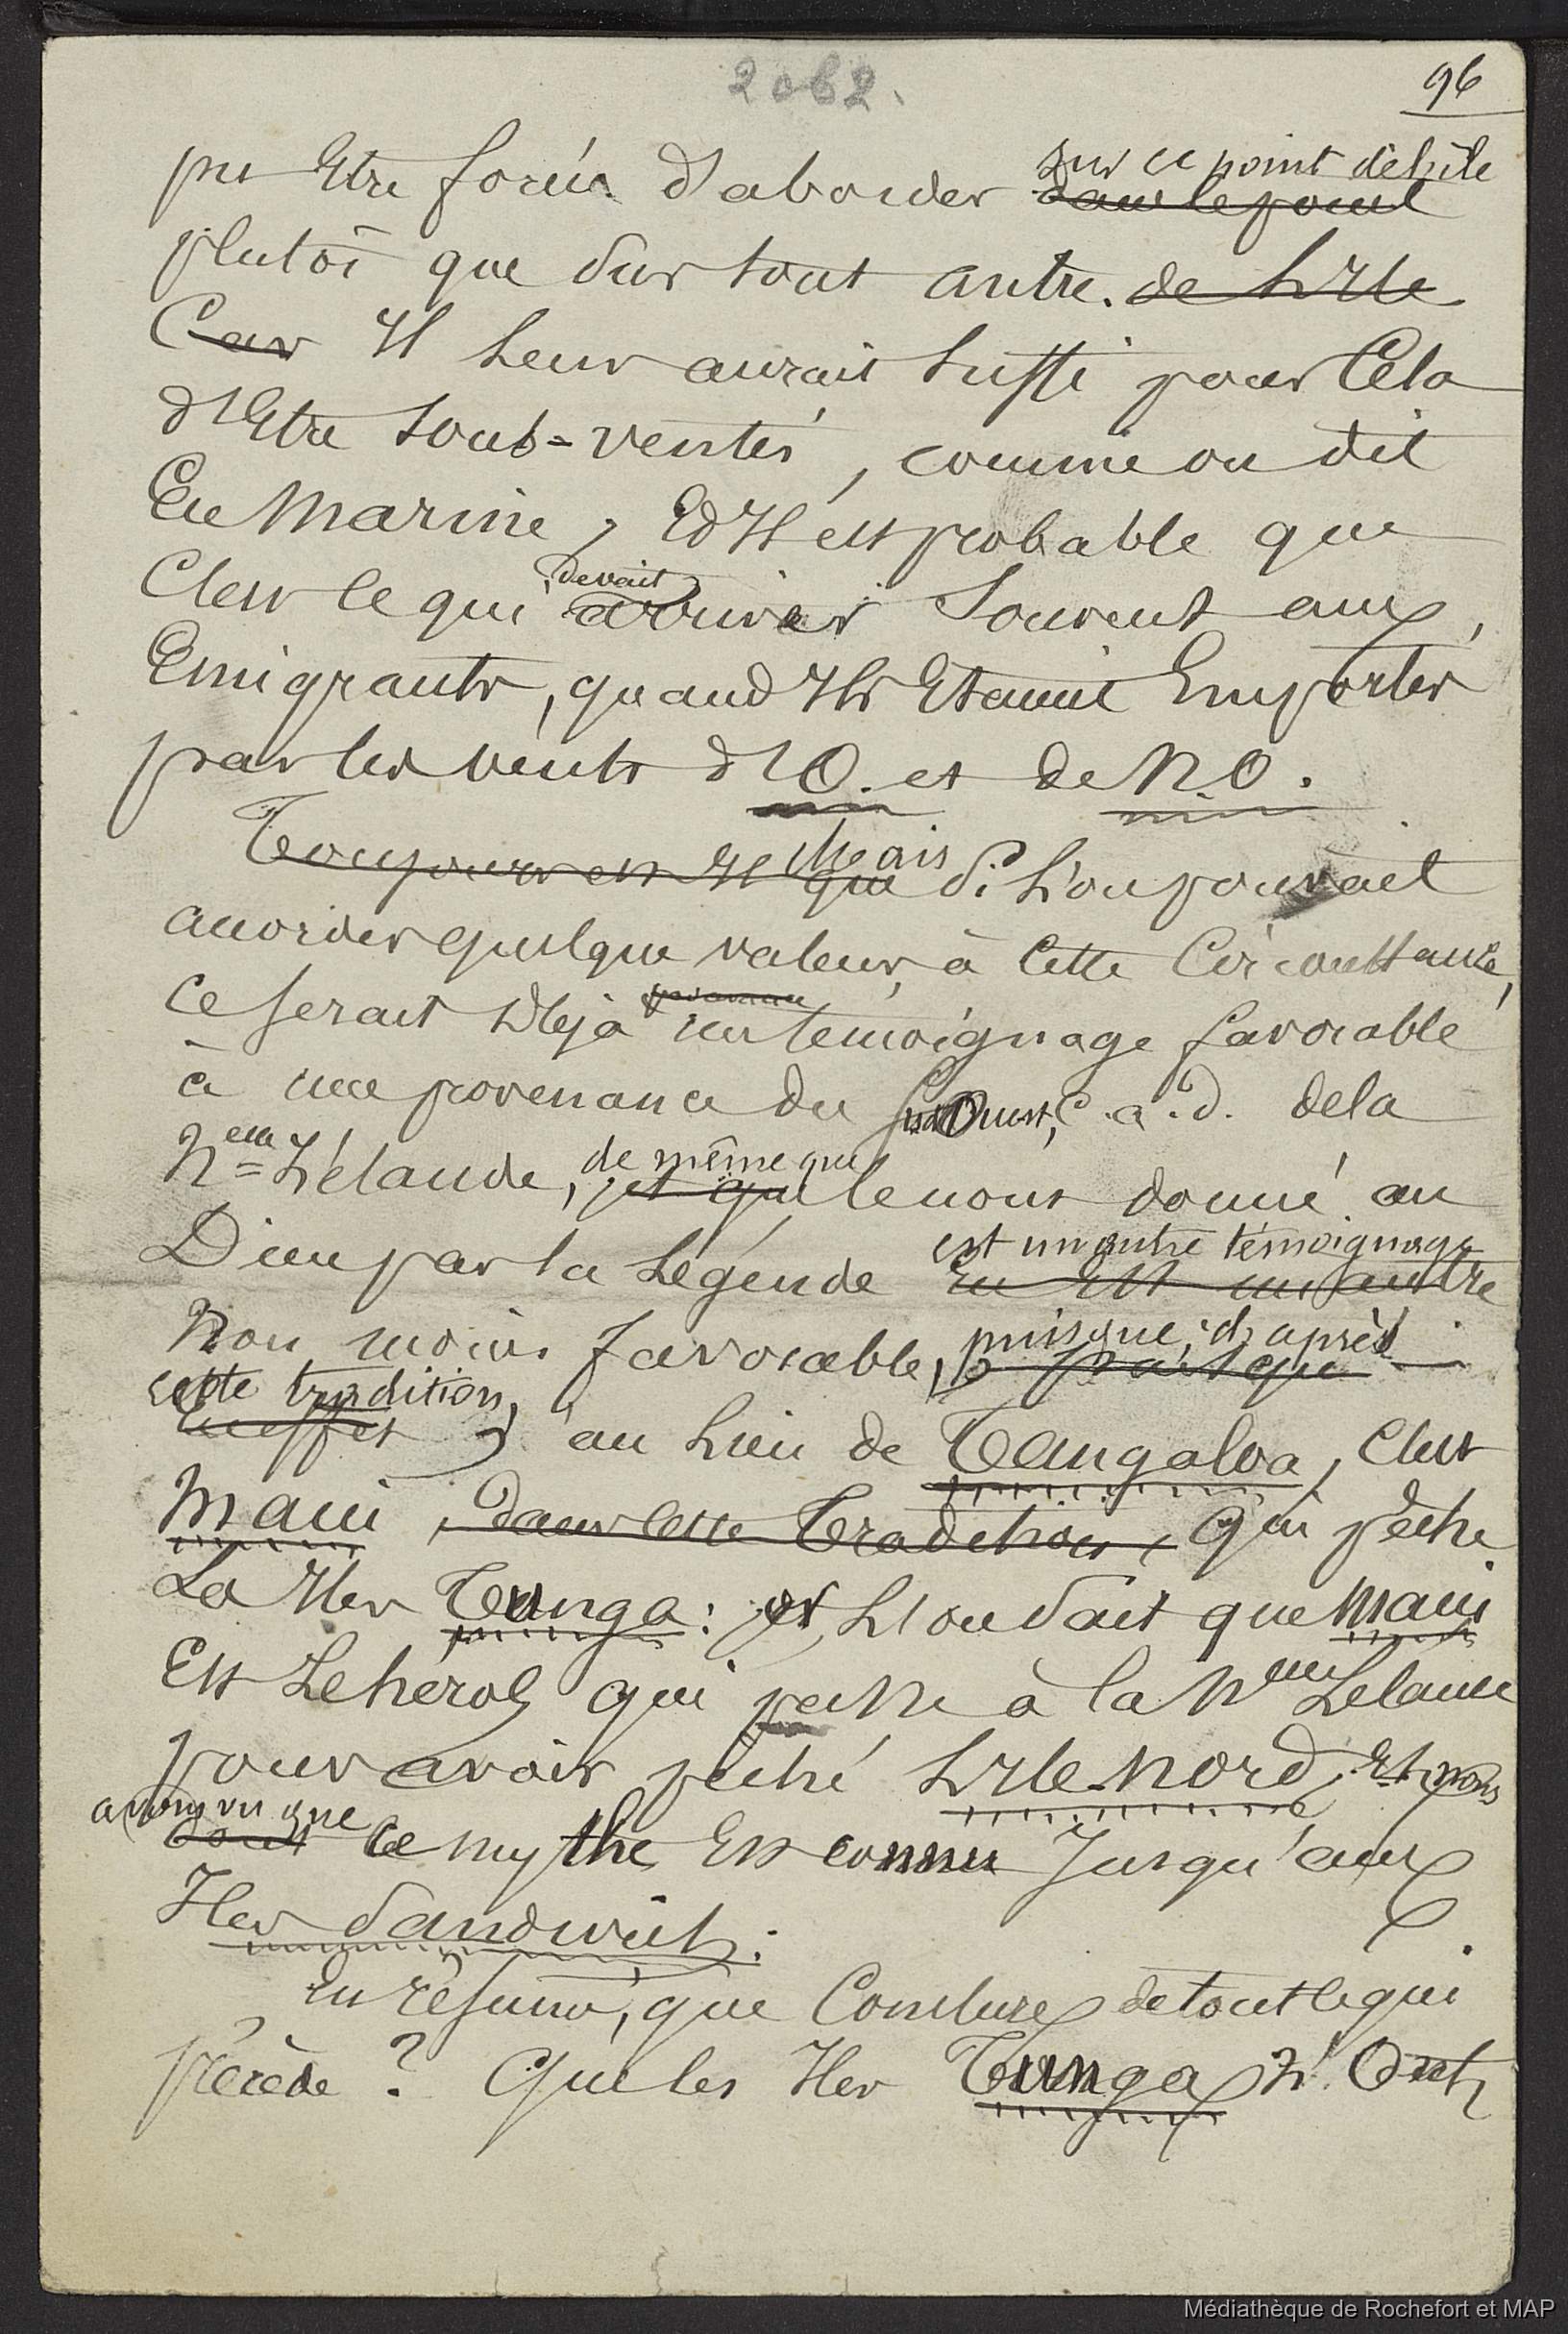 2062.
96
pu Etre forcés d'aborder sur ce point de l'île
dans le point
plutôt que sur tout autre. de L'Ile
Car Il Leur aurait Suffi pour Cela
d'Etre sous-ventés, comme on dit
En Marine, Et Il est probable que
C'est ce qui devait arriver Souvent aux
Emigrants, quand Ils Etaient Emportés
par les vents d'O. et de N.O.
Toujours est Il que Mais Si L'on pouvait
accorder quelque valeur, à Cette Circonstance,
ce serait Déjà un témoignage favorable
à une provenance du Sud Ouest, c.a.d. de la
Nelle Zélande, de même que
et que le nom donné au
Dieu par la Légende est un autre témoignage
En Est un autre
Non moins favorable, puisque, d'après
cette tradition,
En effet, au Lieu de Tangaloa, C'est
Maui, dans cette Tradition, qui pêche
La Iles Tunga: et L'on sait que Maui
Est Le héros qui passe à la Nelle Zelande
pour avoir pêché L'Ile Nord, Et nous
avons vu que
dont ce mythe Est connu Jusqu'aux
Iles Sandwich.
En résumé, que Conclure de tout ce qui
précède? Que les Iles Tunga n'ont